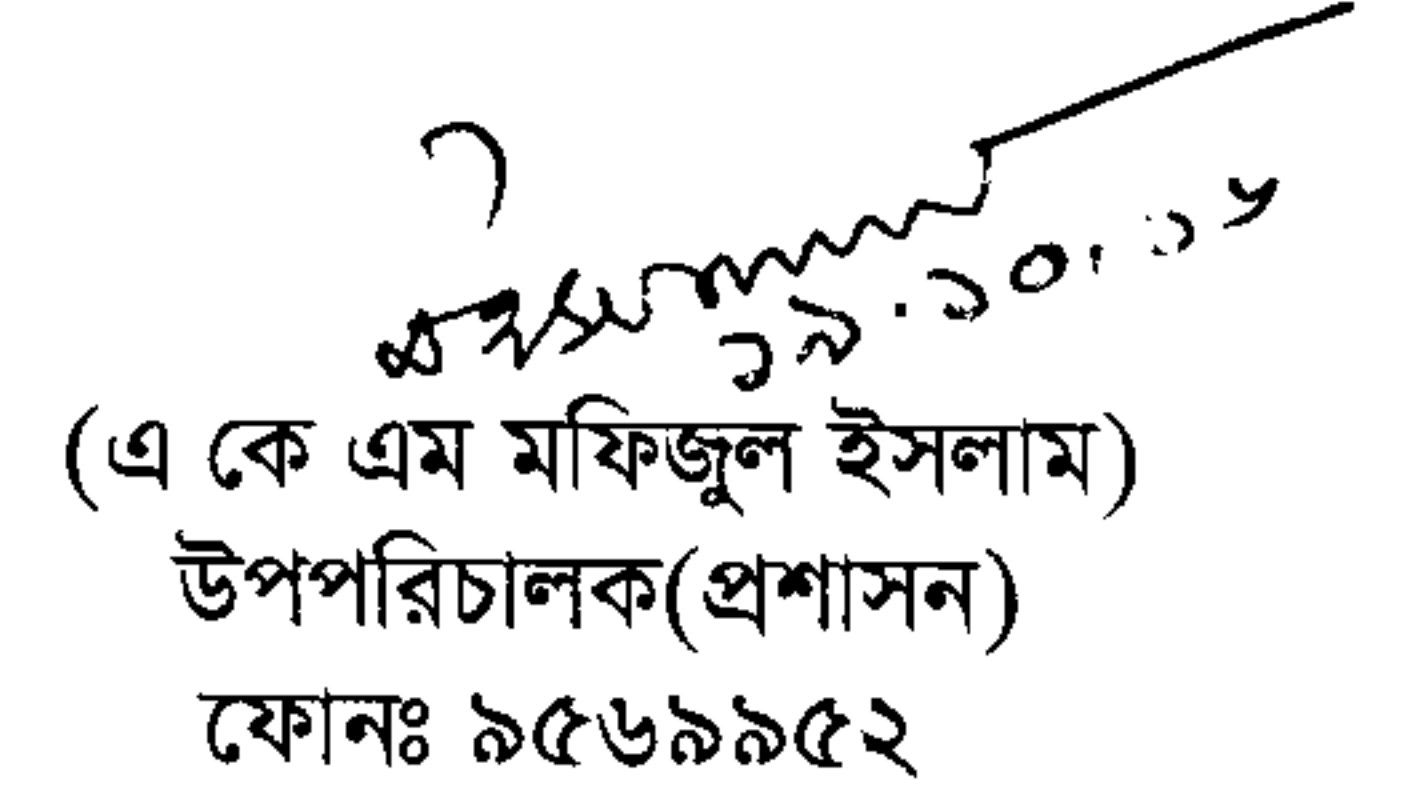 ১৯.১০.১৬
(এ কে এম মফিজুল ইসলাম)
উপপরিচালক(প্রশাসন)
ফোনঃ ৯৫৬৯৯৫২